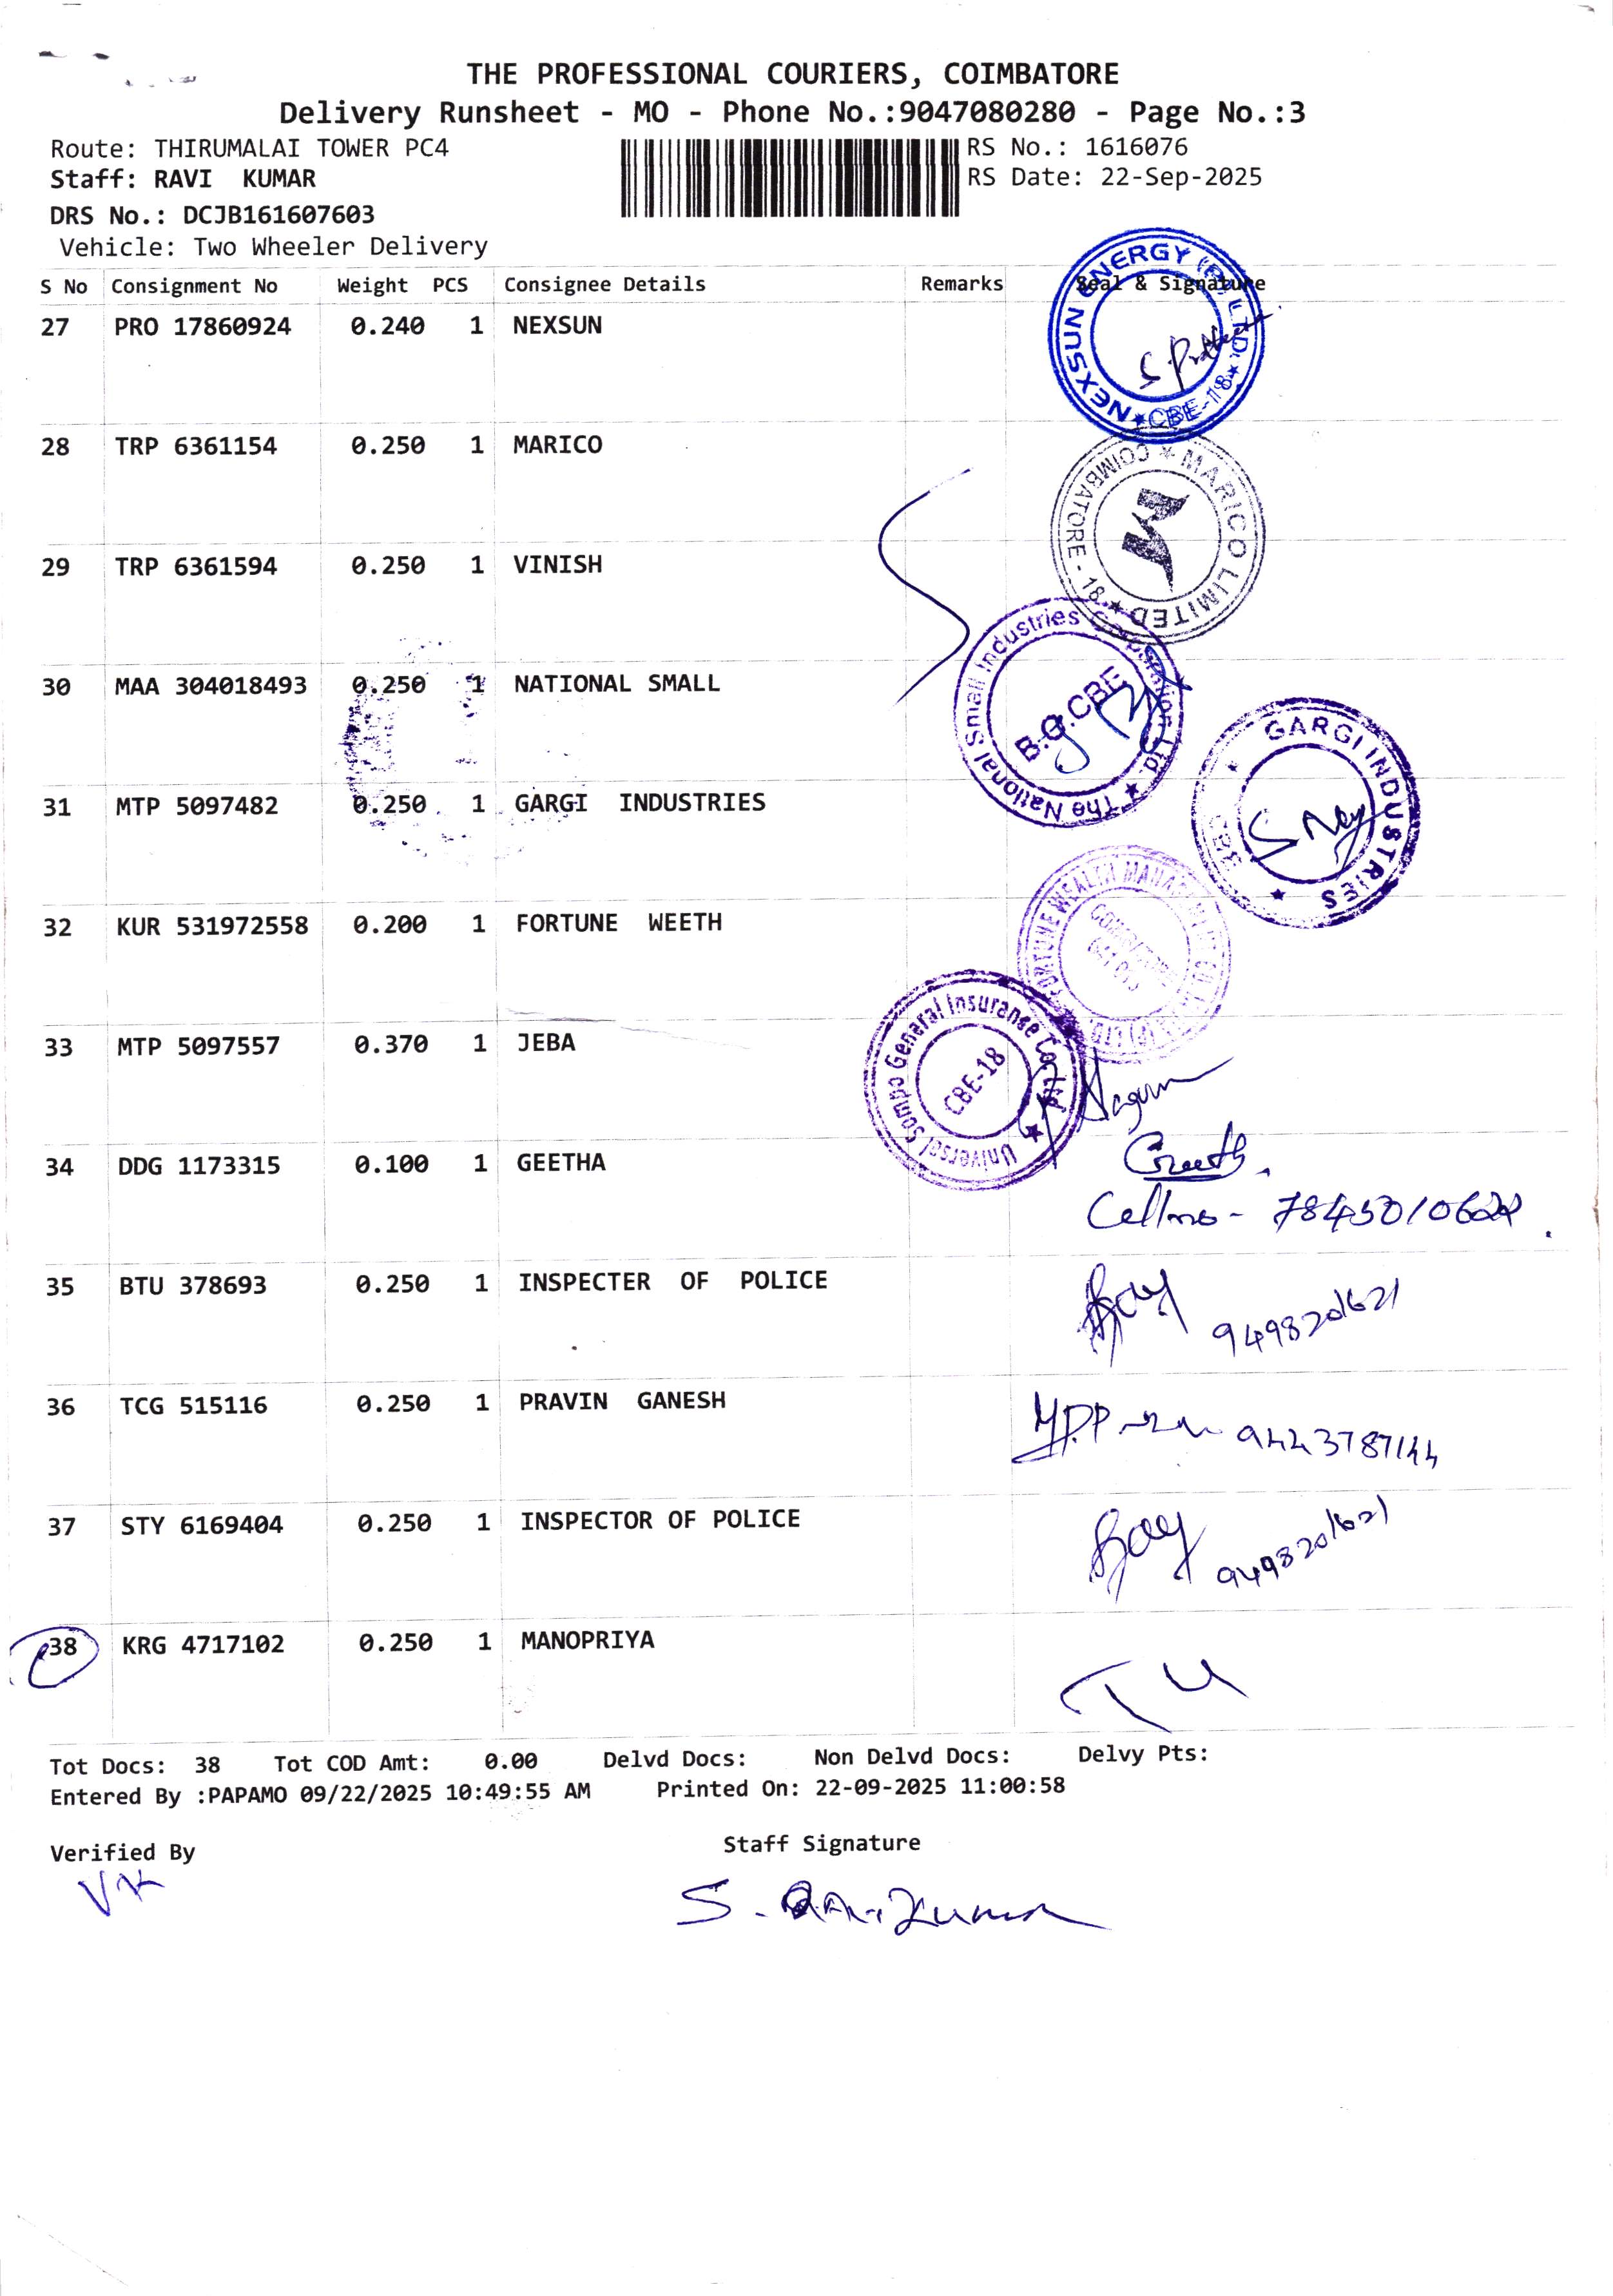 THE PROFESSIONAL COURIERS, COIMBATORE
Delivery Runsheet - MO - Phone No.:9047080280 - Page No.:3
Route: THIRUMALAI TOWER PC4
RS No.: 1616076
Staff: RAVI KUMAR
RS Date: 22-Sep-2025
DRS No.: DCJB161607603
Vehicle: Two Wheeler Delivery
S No Consignment No Weight PCS Consignee Details Remarks Seal & Signature
27 PRO 17860924 0.240 1 NEXSUN
NEXSUN ENERGY (P) LTD. ★ CBE-18 ★
28 TRP 6361154 0.250 1 MARICO
★ MARICO LIMITED ★ COIMBATORE - 18
29 TRP 6361594 0.250 1 VINISH
30 MAA 304018493 0.250 1 NATIONAL SMALL
★ The National Small Industries Corporation Ltd.
B.O.CBE
31 MTP 5097482 0.250 1 GARGI INDUSTRIES
★ GARGI INDUSTRIES ★
32 KUR 531972558 0.200 1 FORTUNE WEETH
FORTUNE WEALTH
33 MTP 5097557 0.370 1 JEBA
Universal Sompo General Insurance Co. Ltd ★
CBE-18
34 DDG 1173315 0.100 1 GEETHA
Geeth.
Cell no -
35 BTU 378693 0.250 1 INSPECTER OF POLICE
9498201621
36 TCG 515116 0.250 1 PRAVIN GANESH
9443787144
37 STY 6169404 0.250 1 INSPECTOR OF POLICE
9498201621
38 KRG 4717102 0.250 1 MANOPRIYA
Tot Docs: 38 Tot COD Amt: 0.00 Delvd Docs: Non Delvd Docs: Delvy Pts:
Entered By :PAPAMO 09/22/2025 10:49:55 AM Printed On: 22-09-2025 11:00:58
Verified By
Staff Signature
VK
S. Ravi Kumar